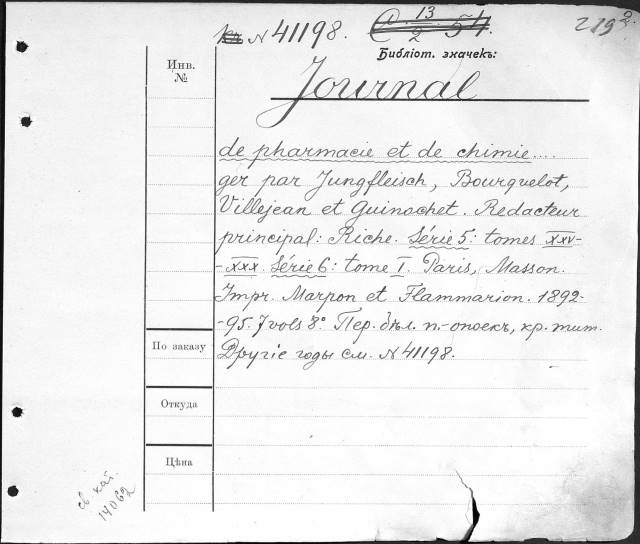 N 41198.
219 2.
Библіот. значекъ:
Инв.
№
Journal
de pharmacie et de chimie....
ger par Jungfleisch, Bourquelot,
Villejean et Guinochet. Redacteur
principal: Riche. Série 5: tomes XXV-
-XXX. Série 6: tome I. Paris, Masson.
Impr. Marpon et Flammarion. 1892-
-95. 7 vols 8° Пер. бѣл. п.-опоекъ, кр. тит.
По заказу
Другіе годы см. N 41198.
Откуда
Цѣна
св. кат.
14062